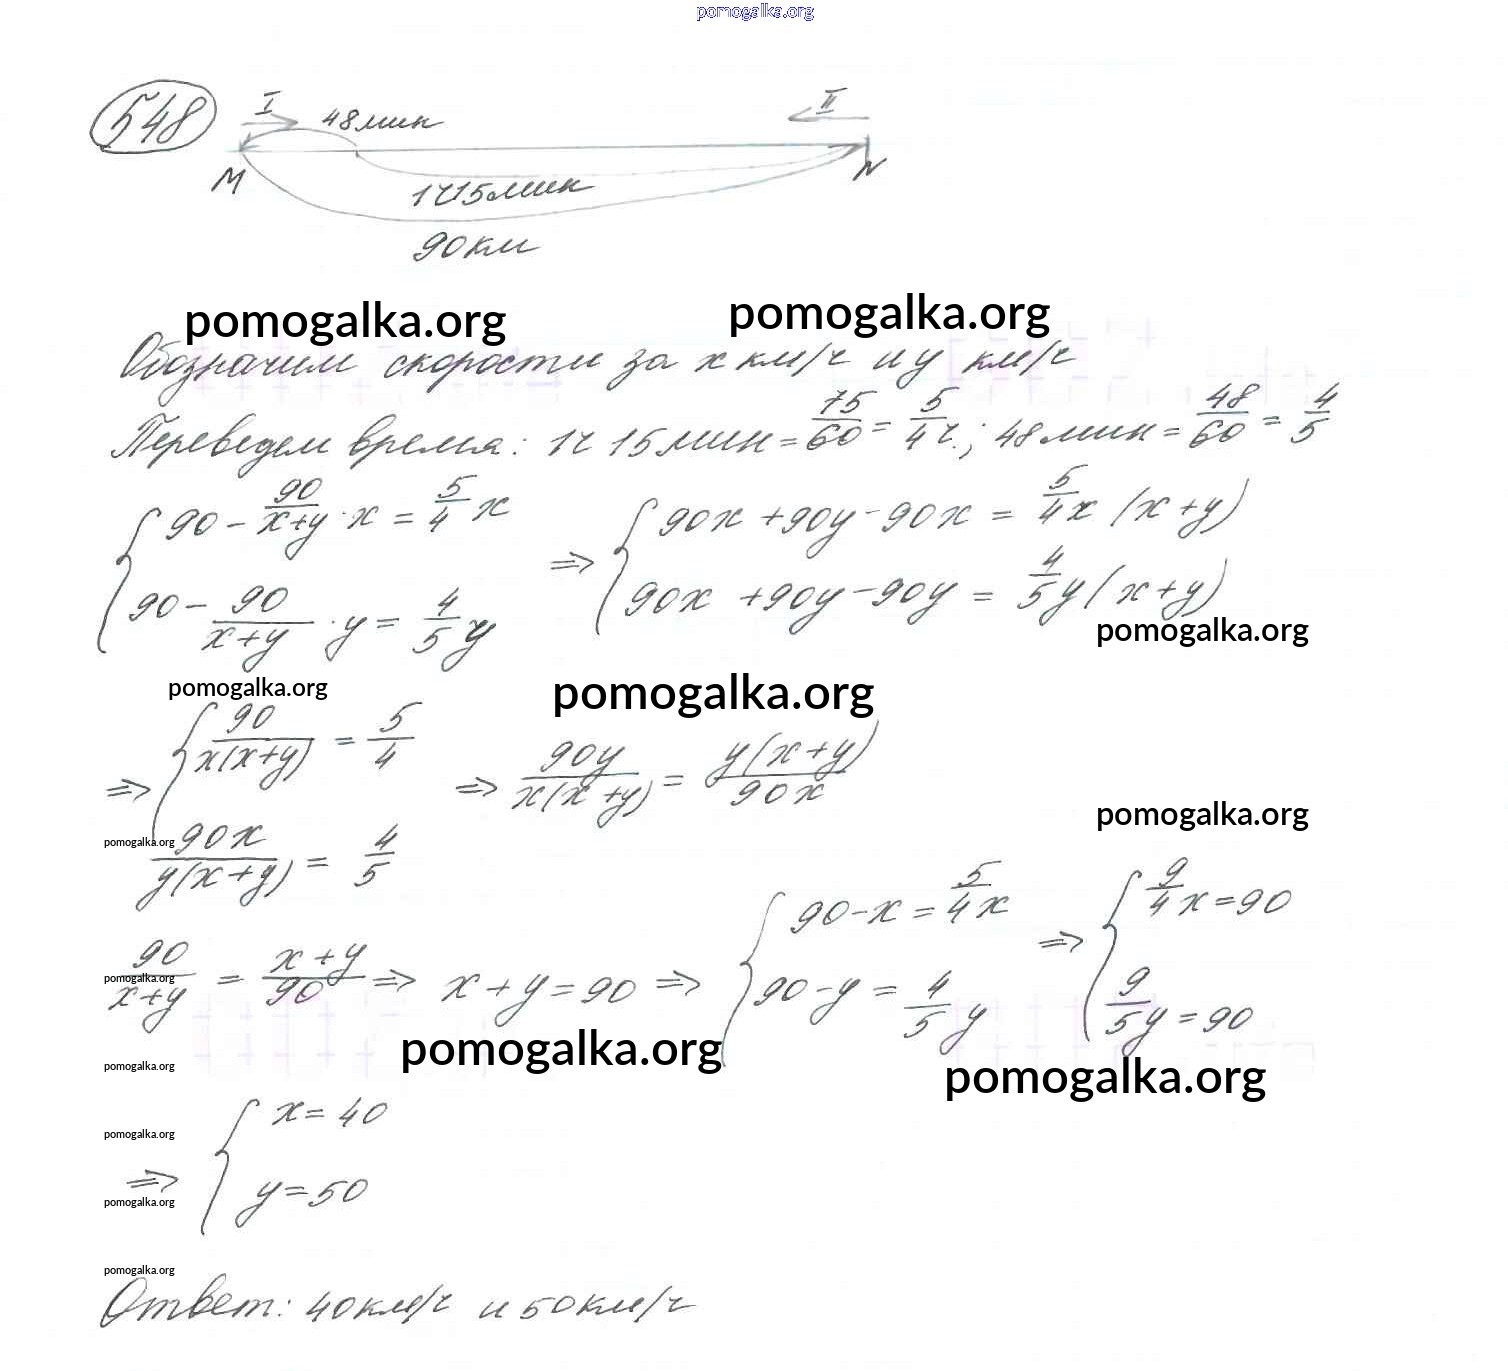 pomogalka.org
548
I 48мин II
M N
1ч15мин
90км
pomogalka.org pomogalka.org
Обозначим скорости за x км/ч и y км/ч
Переведем время: 1ч 15мин = 75/60 = 5/4 ч.; 48мин = 48/60 = 4/5
{ 90 - 90/(x+y) · x = 5/4 x
90 - 90/(x+y) · y = 4/5 y
⇒ { 90x + 90y - 90x = 5/4 x (x+y)
90x + 90y - 90y = 4/5 y (x+y)
pomogalka.org
pomogalka.org pomogalka.org
⇒ { 90/(x(x+y)) = 5/4
90x/(y(x+y)) = 4/5
⇒ 90y/(x(x+y)) = y(x+y)/(90x)
pomogalka.org
pomogalka.org
90/(x+y) = (x+y)/90 ⇒ x + y = 90 ⇒ { 90 - x = 5/4 x
90 - y = 4/5 y
⇒ { 9/4 x = 90
9/5 y = 90
pomogalka.org
pomogalka.org pomogalka.org
pomogalka.org
⇒ { x = 40
y = 50
pomogalka.org
pomogalka.org
pomogalka.org
Ответ: 40км/ч и 50км/ч